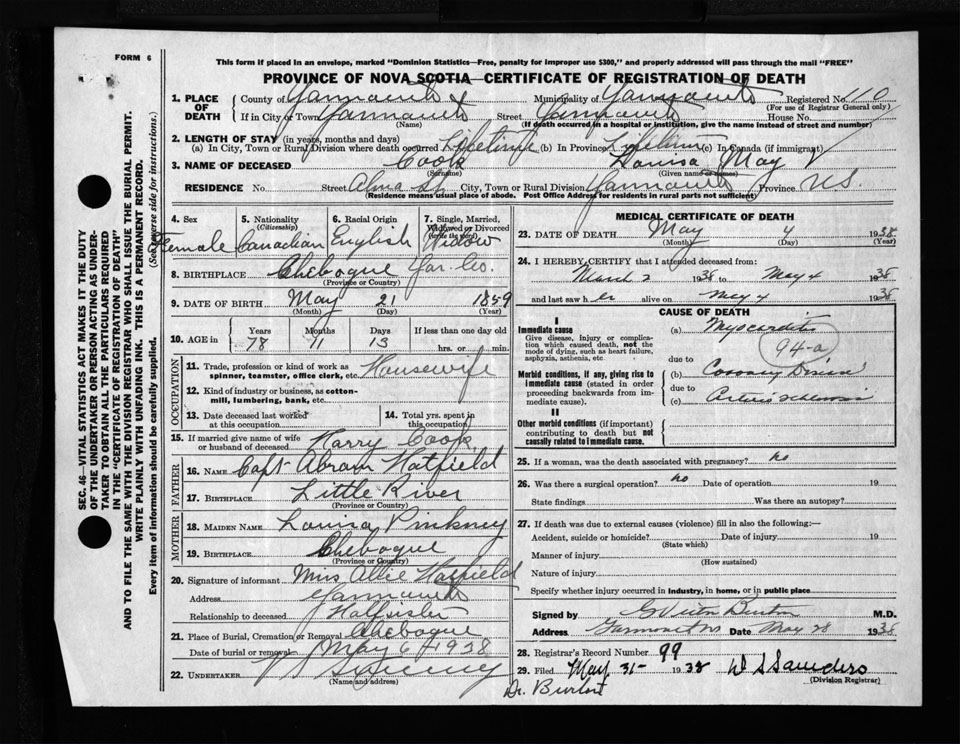 FORM 6
This form if placed in an envelope, marked "Dominion Statistics—Free, penalty for improper use $300," and properly addressed will pass through the mail "FREE"
PROVINCE OF NOVA SCOTIA—CERTIFICATE OF REGISTRATION OF DEATH
1. PLACE OF DEATH
County of Yarmouth Municipality of Yarmouth Registered No. 10
(For use of Registrar General only)
If in City or Town Yarmouth Street Yarmouth House No.
(Name) (If death occurred in a hospital or institution, give the name instead of street and number)
2. LENGTH OF STAY (in years, months and days)
(a) In City, Town or Rural Division where death occurred Lifetime (b) In Province Lifetime (c) In Canada (if immigrant)
3. NAME OF DECEASED Cook Louisa May
(Surname) (Given name or names)
RESIDENCE No. Street Alma St. City, Town or Rural Division Yarmouth Province N.S.
(Residence means usual place of abode. Post Office Address for residents in rural parts not sufficient)
4. Sex 5. Nationality (Citizenship) 6. Racial Origin 7. Single, Married, Widowed or Divorced
Female Canadian English Widow
8. BIRTHPLACE Chebogue Yar. Co.
(Province or Country)
9. DATE OF BIRTH May 21 1859
(Month) (Day) (Year)
10. AGE in Years Months Days If less than one day old
78 11 13 hrs. or min.
OCCUPATION
11. Trade, profession or kind of work as spinner, teamster, office clerk, etc. Housewife
12. Kind of industry or business, as cotton-mill, lumbering, bank, etc.
13. Date deceased last worked at this occupation
14. Total yrs. spent in this occupation
15. If married give name of wife or husband of deceased Harry Cook
FATHER
16. NAME Capt Abram Hatfield
17. BIRTHPLACE Little River
(Province or Country)
MOTHER
18. MAIDEN NAME Louisa Pinkney
19. BIRTHPLACE Chebogue
(Province or Country)
20. Signature of informant Miss Allie Hatfield
Address Yarmouth
Relationship to deceased Half sister
21. Place of Burial, Cremation or Removal Chebogue
Date of burial or removal May 6 1938
22. UNDERTAKER Sweeny
(Name and address)
MEDICAL CERTIFICATE OF DEATH
23. DATE OF DEATH May 4 1938
(Month) (Day) (Year)
24. I HEREBY CERTIFY that I attended deceased from:
March 2 1938 to May 4 1938
and last saw her alive on May 4 1938
CAUSE OF DEATH
I
Immediate cause
Give disease, injury or complication which caused death, not the mode of dying, such as heart failure, asphyxia, asthenia, etc.
(a) Myocarditis
94-a
due to
Morbid conditions, if any, giving rise to immediate cause (stated in order proceeding backwards from immediate cause).
(b) Coronary Disease
due to
(c) Arterio sclerosis
II
Other morbid conditions (if important) contributing to death but not causally related to immediate cause.
25. If a woman, was the death associated with pregnancy? no
26. Was there a surgical operation? no Date of operation 19
State findings Was there an autopsy?
27. If death was due to external causes (violence) fill in also the following:—
Accident, suicide or homicide? Date of injury 19
(State which)
Manner of injury
(How sustained)
Nature of injury
Specify whether injury occurred in industry, in home, or in public place
Signed by M.D.
Address Yarmouth NS Date May 28 1938
28. Registrar's Record Number 99
29. Filed May 31- 1938 W S Saunders
(Division Registrar)
Dr. Burton
SEC. 46—VITAL STATISTICS ACT MAKES IT THE DUTY OF THE UNDERTAKER OR PERSON ACTING AS UNDERTAKER TO OBTAIN ALL THE PARTICULARS REQUIRED IN THE "CERTIFICATE OF REGISTRATION OF DEATH"
AND TO FILE THE SAME WITH THE DIVISION REGISTRAR WHO SHALL ISSUE THE BURIAL PERMIT.
WRITE PLAINLY WITH UNFADING INK. THIS IS A PERMANENT RECORD.
Every item of information should be carefully supplied. (See reverse side for instructions.)